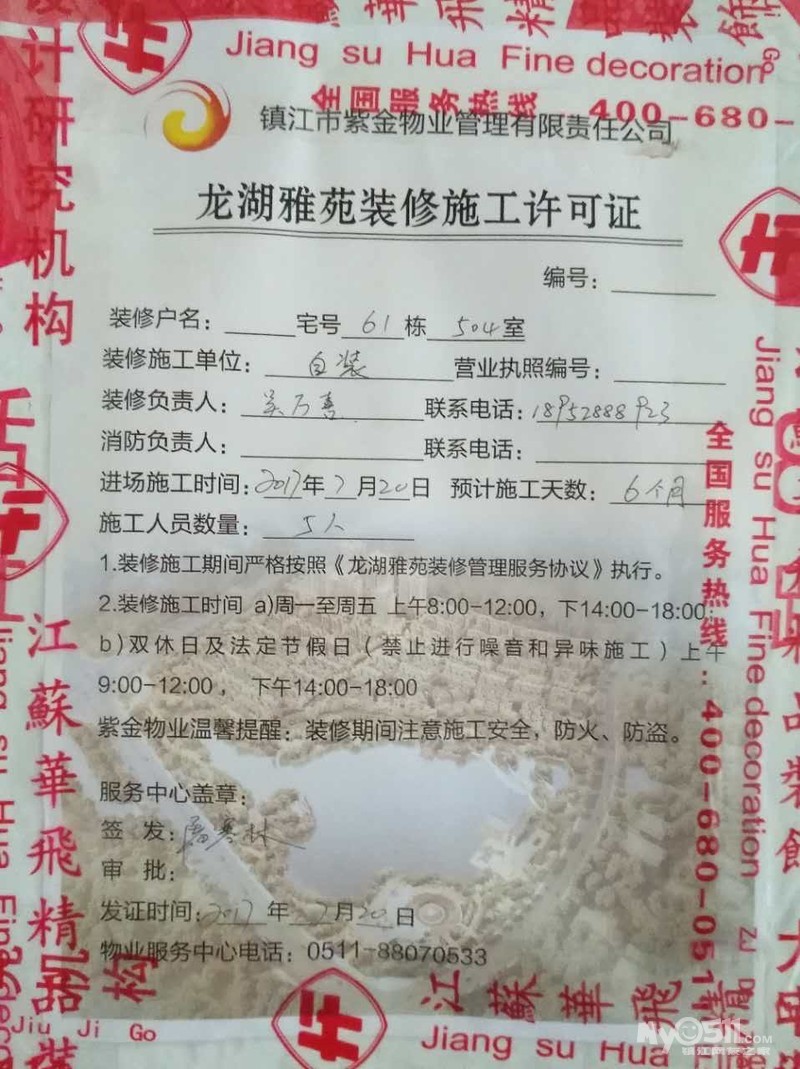 Jiang su Hua Fine decoration
全国服务热线:400-680-
镇江市紫金物业管理有限责任公司
龙湖雅苑装修施工许可证
编号：
装修户名： 宅号 61 栋 504 室
装修施工单位： 自装 营业执照编号：
装修负责人： 吴万喜 联系电话：18952888923
消防负责人： 联系电话：
进场施工时间：2017年7月20日 预计施工天数：6个月
施工人员数量： 5人
1.装修施工期间严格按照《龙湖雅苑装修管理服务协议》执行。
2.装修施工时间 a)周一至周五 上午8:00-12:00，下14:00-18:00;
b)双休日及法定节假日（禁止进行噪音和异味施工）上午
9:00-12:00， 下午14:00-18:00
紫金物业温馨提醒：装修期间注意施工安全，防火、防盗。
服务中心盖章：
签 发：
审 批：
发证时间：2017年7月20日
物业服务中心电话：0511-88070533
设计研究机构
江蘇華飛精品装
Jiu Ji Go
江蘇華飛
Jiang su Hua
全国服务热线:400-680-051
Jiang su Hua Fine decoration
品装飾
构